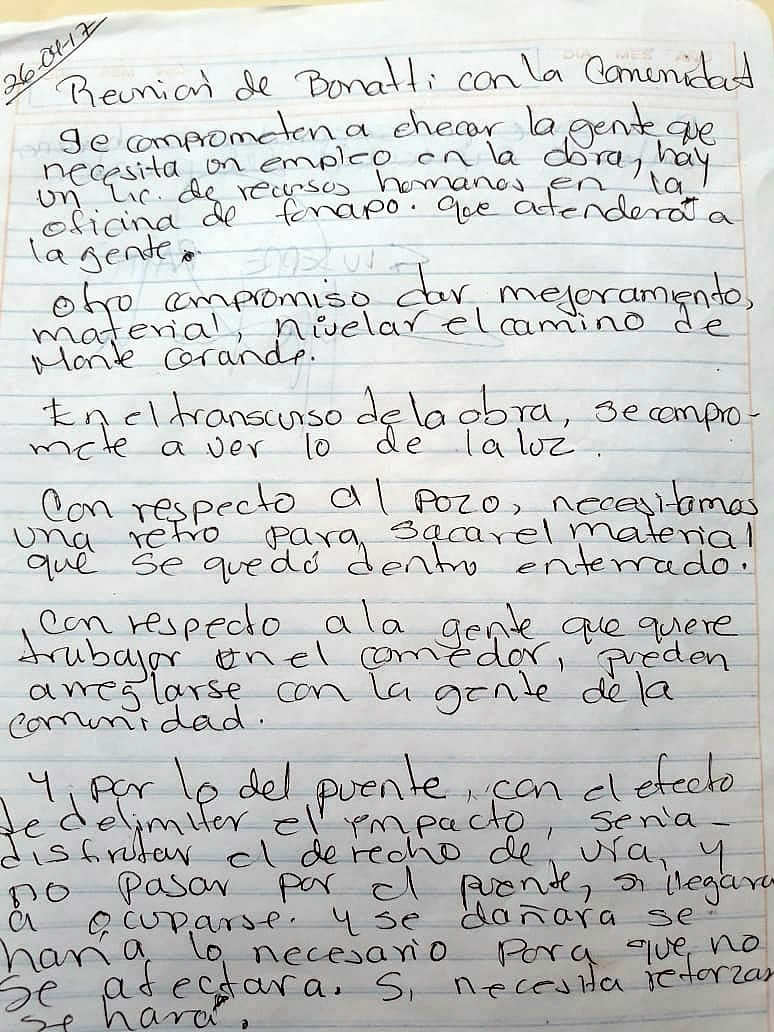 26-04-17
Reunion de Bonatti con la Comunidad
Se comprometen a checar la gente que
necesita un empleo en la obra, hay
un Lic. de recursos homanos en la
oficina de fonapo. que atenderá a
la gente.
otro compromiso dar mejoramiento,
material, nivelar el camino de
Monte Grande.
En el transcurso de la obra, se compro-
mete a ver lo de la luz.
Con respecto al pozo, necesitamos
una retro para sacar el material
que se quedó dentro enterrado.
Con respecto a la gente que quiere
trabajar en el comedor, pueden
arreglarse con la gente de la
comunidad.
Y por lo del puente, con el efecto
de delimiter el impacto, seria
disfrutar el derecho de vía, y
no pasar por el puente, si llegara
a ocuparse. y se dañara se
haria lo necesario para que no
se afectara. Si necesita reforzar
se hará.